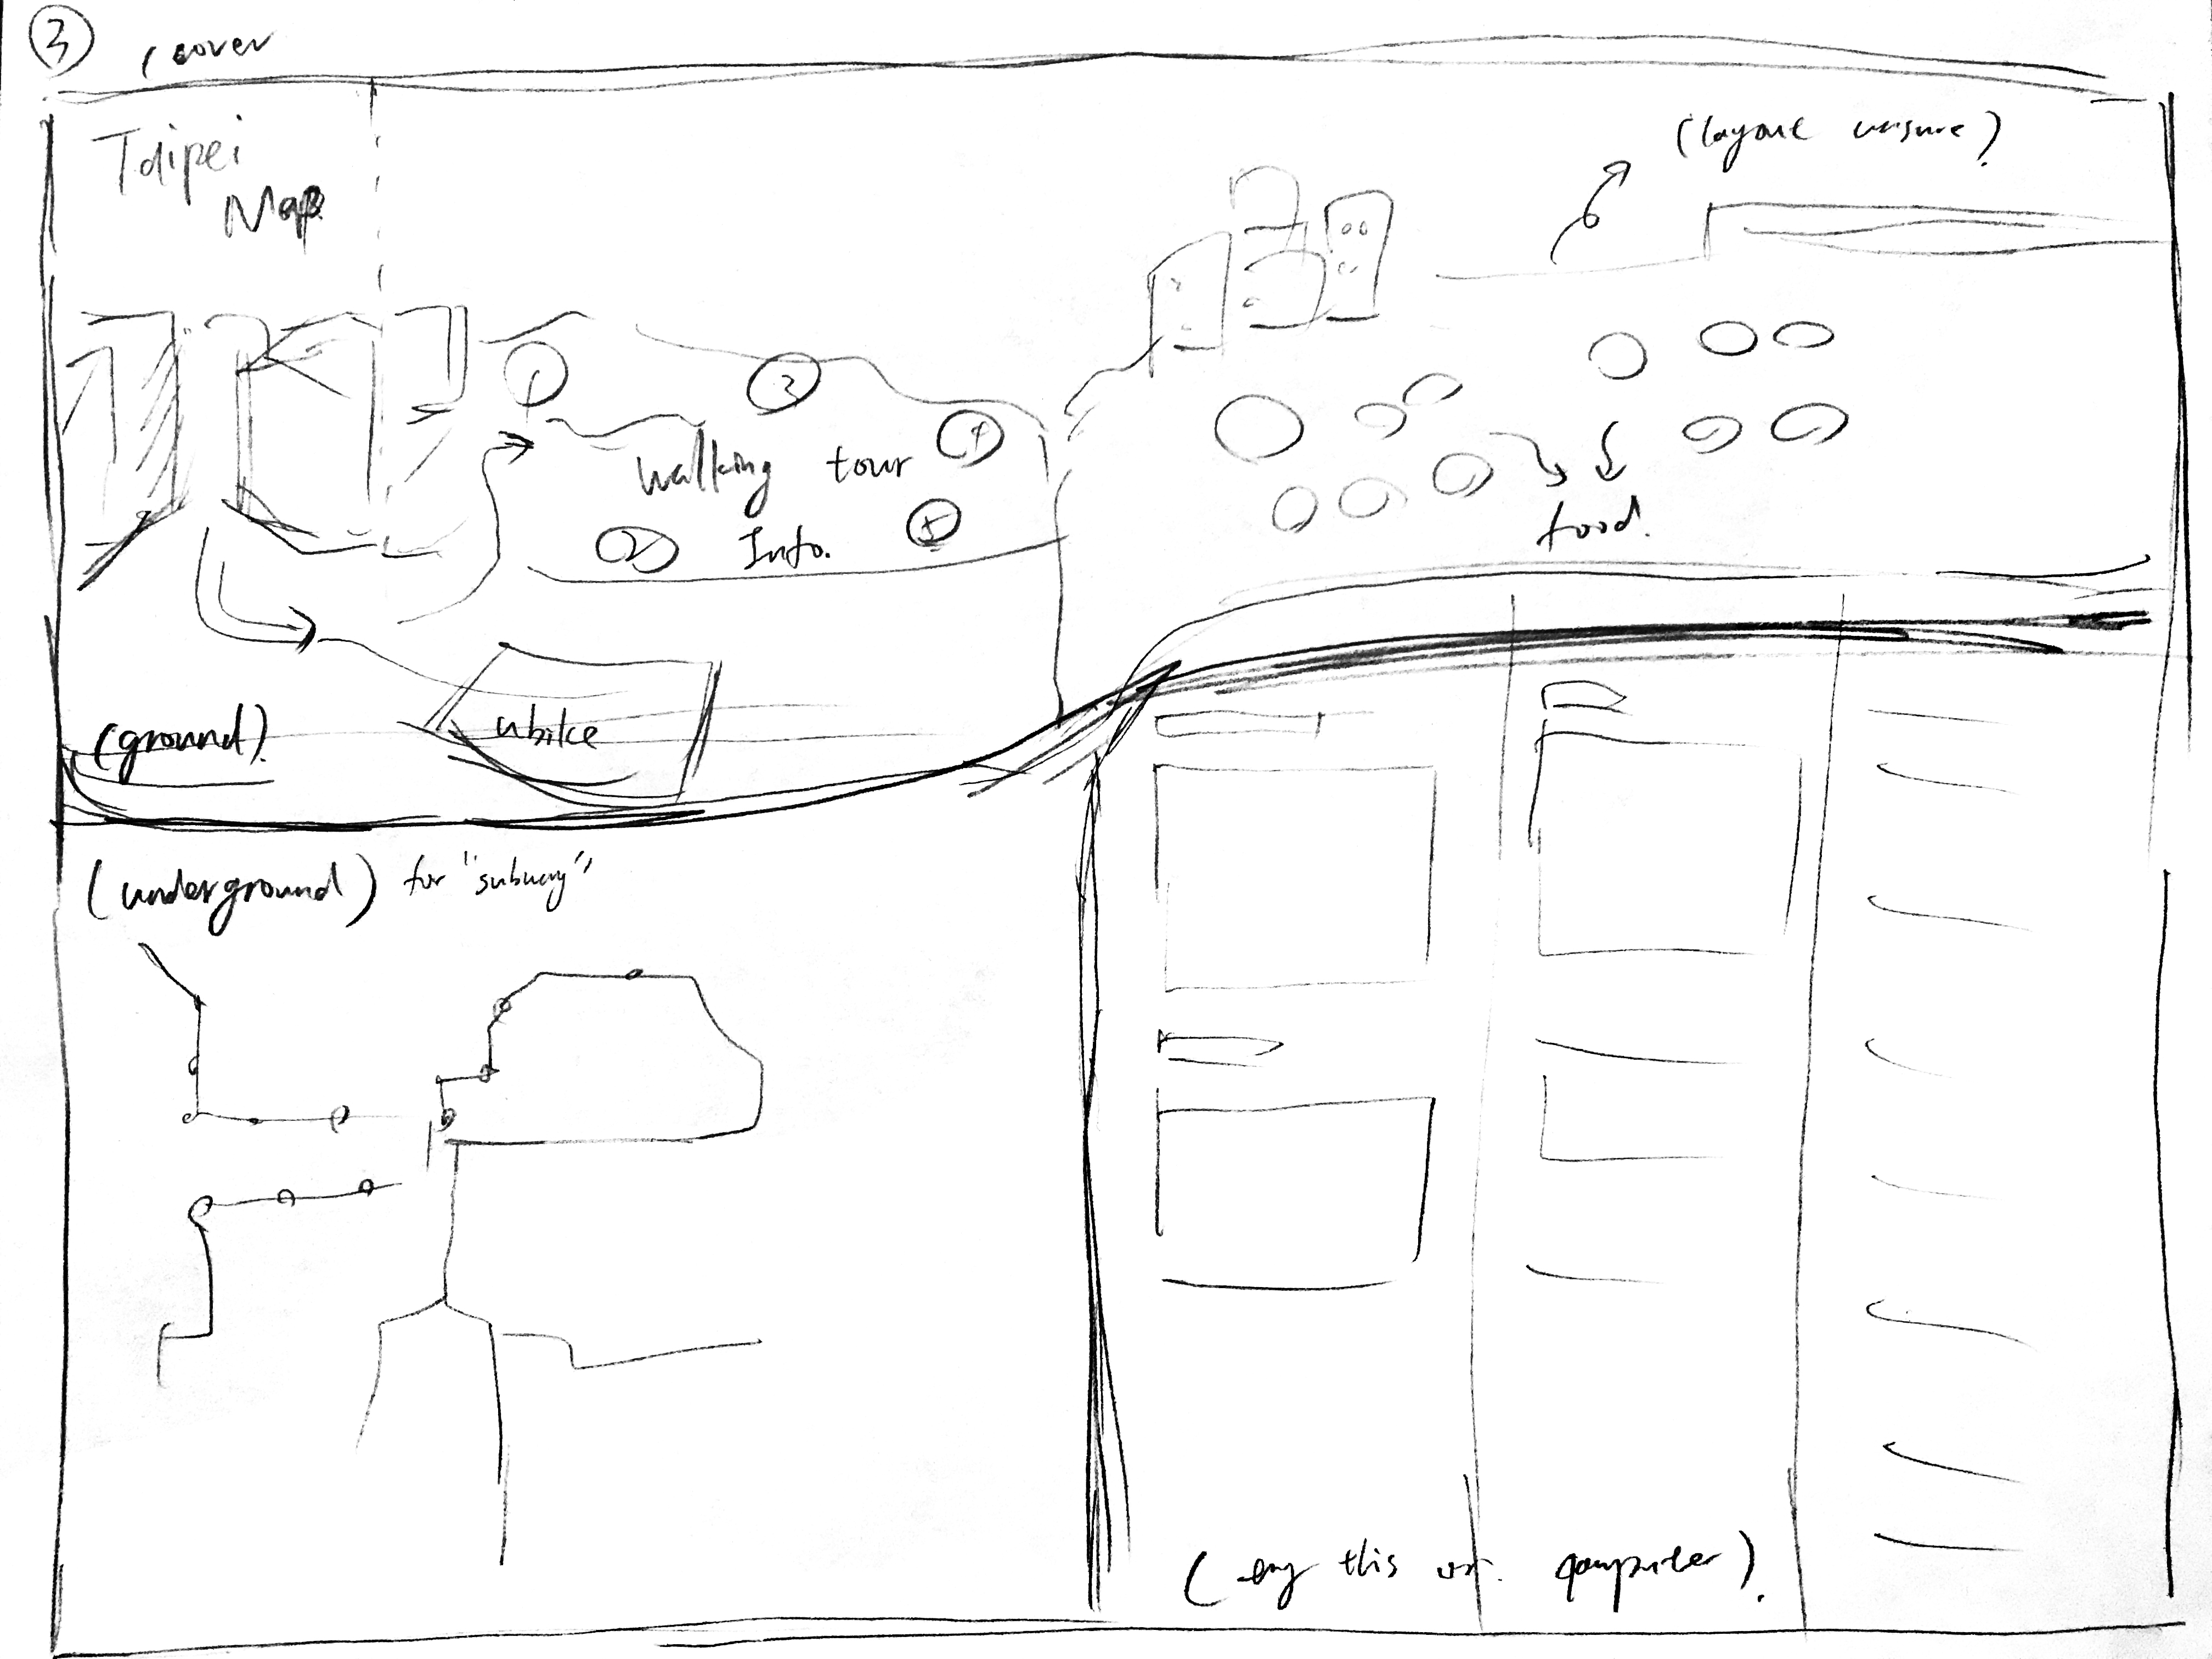 3
cover
Taipei
Map
(layout unsure)
1
3
walking tour
Info.
2
food.
(ground)
ubike
(underground) for "subway"
this on computer).